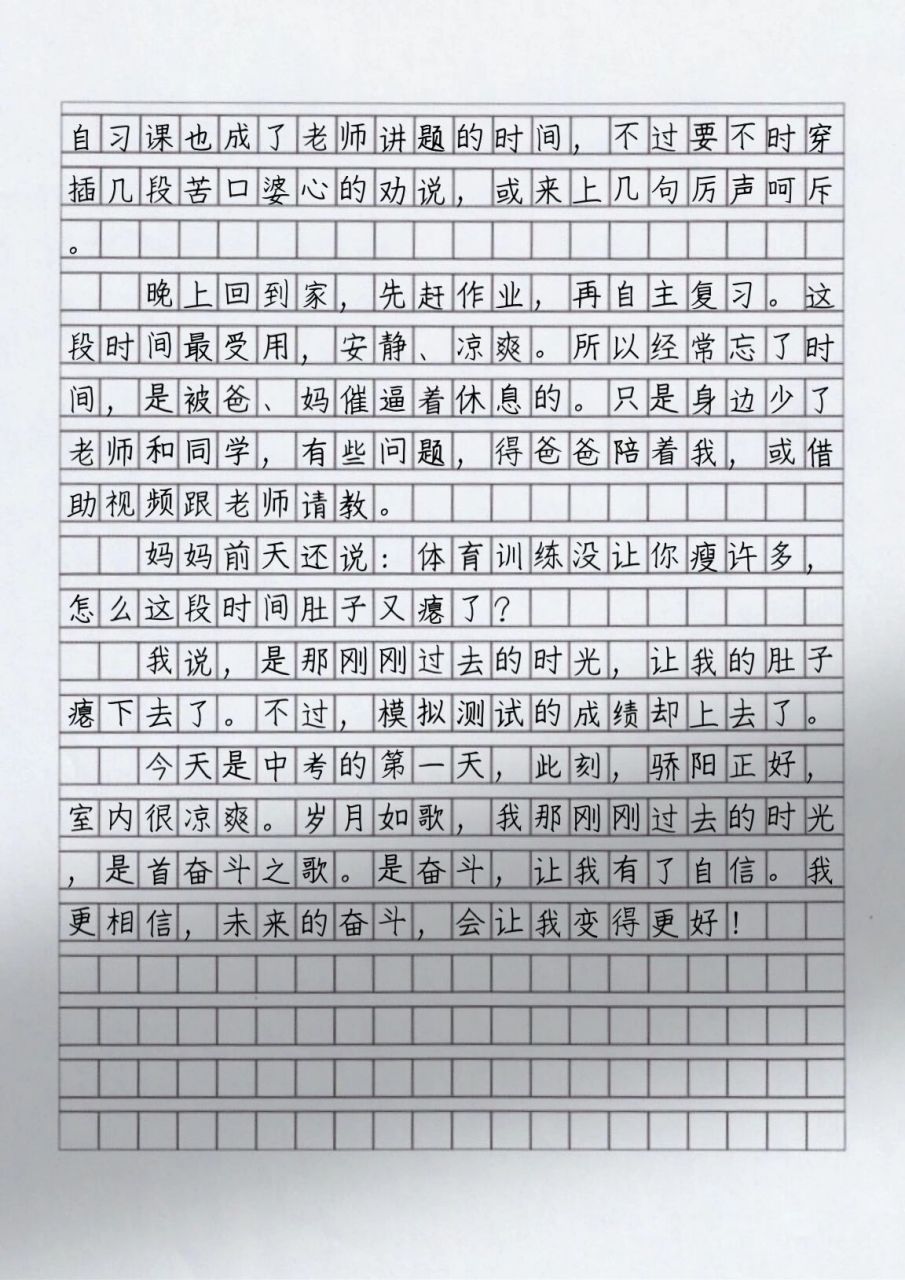 自习课也成了老师讲题的时间，不过要不时穿
插几段苦口婆心的劝说，或来上几句厉声呵斥
。
晚上回到家，先赶作业，再自主复习。这
段时间最受用，安静、凉爽。所以经常忘了时
间，是被爸、妈催逼着休息的。只是身边少了
老师和同学，有些问题，得爸爸陪着我，或借
助视频跟老师请教。
妈妈前天还说：体育训练没让你瘦许多，
怎么这段时间肚子又瘪了？
我说，是那刚刚过去的时光，让我的肚子
瘪下去了。不过，模拟测试的成绩却上去了。
今天是中考的第一天，此刻，骄阳正好，
室内很凉爽。岁月如歌，我那刚刚过去的时光
，是首奋斗之歌。是奋斗，让我有了自信。我
更相信，未来的奋斗，会让我变得更好！